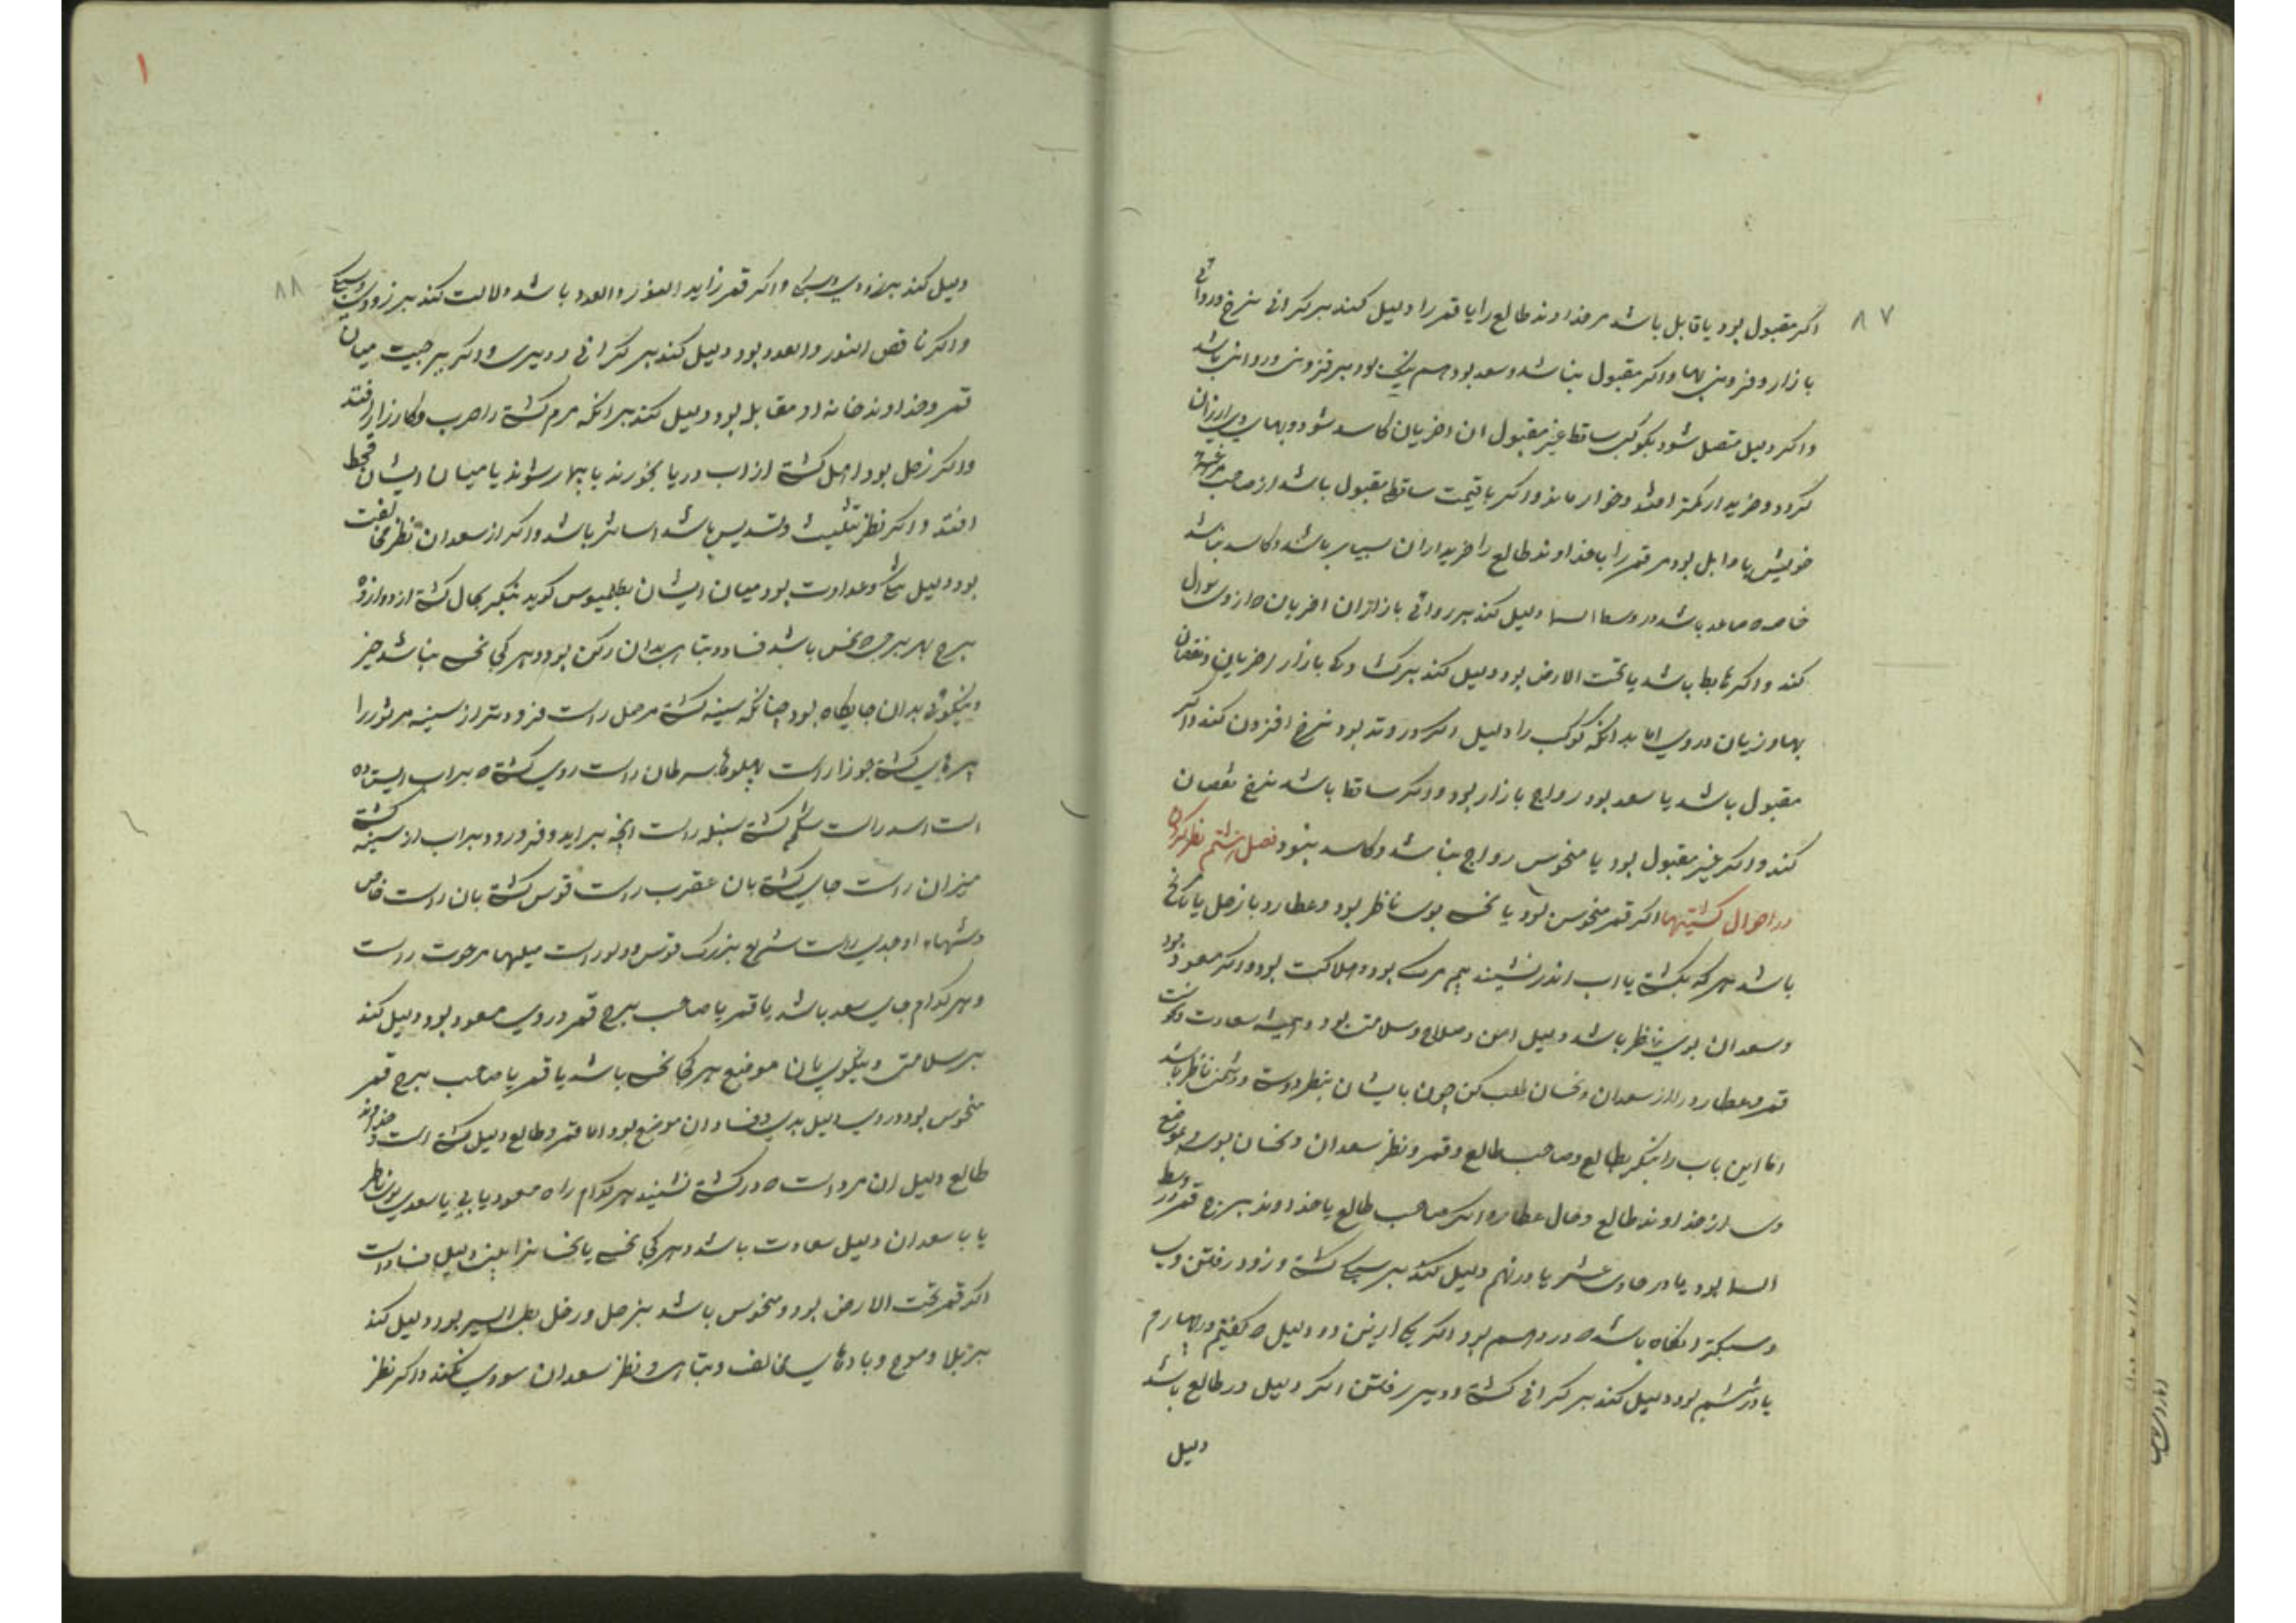 ۸۷
اکر مقبول بود یا قابل باشد مر خداوند طالع را یا قمر را دلیل کند بر کرانی نرخ و روائی
بازار و فزونی بها و اکر مقبول نباشد و سعد بود هم نیک بود بر فزونی و روانی باشد
و اکر دلیل متصل شود بکوکب ساقط غیر مقبول ان اخریان کاسد شود و بهای وی ارزان
کردد و خریدار کمتر افتد و خوار ماند و اکر باقیمت ساقط مقبول باشد از صاحب
خویش یا قابل بود مر قمر را یا خداوند طالع را خریداران بسیار باشد و کاسد نباشد
خاصه صاعد باشد در وسط السما دلیل کند بر روائی بازار ان اخریان ه از وی سوال
کند و اکر هابط باشد یا تحت الارض بود دلیل کند بر کسادی بازار اخریان و نقصان
بها و زیان در وی اما بدانکه کوکب را دلیل اکر در وتد بود نرخ افزون کند و اکر
مقبول باشد یا سعد بود رواج بازار بود و اکر ساقط باشد نرخ نقصان
کند و اکر غیر مقبول بود یا منحوس رواج نباشد و کاسد بود فصل ششم نظر کردن
در احوال کشتیها اکر قمر منحوس بود یا نحس بوی ناظر بود و عطارد با زحل یا مریخ
باشد هر که بکشتی یا اب اندر نشیند بیم مرک بود و هلاکت بود و اکر مسعود بود
و سعدان بوی ناظر باشد دلیل امن و صلاح و سلامتی بود و همیشه سعادت و نحوست
قمر و عطارد را از سعدان و نحسان طلب کن چون بایشان بنظر دوست و دشمن ناظر باشد
اما این باب را بنکر بطالع و صاحب طالع و قمر و نظر سعدان و نحسان بوی و موضع
وی از خداوند طالع و حال عطارد اکر صاحب طالع یا خداوند برج قمر در وسط
السما بود یا در حادی عشر یا در نهم دلیل کند بر سبکی کشتی و زود رفتن وی
و سبکتر انکاه باشد ه در دهم بود اکر یکی ازین دو دلیل ه کفتیم در چهارم
یا در ششم بود دلیل کند بر کرانی کشتی و دیر رفتن اکر دلیل در طالع باشد
دلیل
۱
۸۸
دلیل کند بر زودی و سبکی و اکر قمر زاید النور و العدد باشد دلالت کند بر زودی و سبکی
و اکر ناقص النور و العدد بود دلیل کند بر کرانی و دیری و اکر مریخ میان
قمر و خداوند خانه او مقابل بود دلیل کند بر انکه مردم کشتی را حرب و کارزار افتد
و اکر زحل بود اهل کشتی از اب دریا بخورند یا بیمار شوند یا میان ایشان قحط
افتد و اکر نظر تثلیث و تسدیس باشد اسانتر باشد و اکر از سعدان نظر مخالفت
بود دلیل عداوت بود میان ایشان بطلمیوس کوید بنکر بحال کشتی از دوازده
برج بهر برجی ه نحس باشد فساد و تباهی بدان رکن بود و هر کجا نحس نباشد خیر
و نیکوئی بدان جایکاه بود چنانکه سینه کشتی مر حمل راست فرودتر از سینه مر ثور را
کشتی جوزا راست پهلوها سرطان راست روی کشتی ه بر اب ایستاده
است اسد راست شکم کشتی سنبله راست انچه بر اید و فرو رود بر اب از سینه کشتی
میزان راست جای کشتی بان عقرب راست قوس کشتی بان راست خاص
او جدی راست شراع بزرک قوس و دلو راست میلها مر حوت راست
و هر کدام جای سعد باشد یا قمر یا صاحب برج قمر در وی مسعود بود دلیل کند
بر سلامتی و نیکوی ان موضع هر کجا نحس باشد یا قمر یا صاحب برج قمر
منحوس بود در وی دلیل بدی و فساد ان موضع بود اما قمر و طالع دلیل کشتی است و خداوند
طالع دلیل ان مرد است ه در کشتی نشیند هر کدام را ه مسعود یابی یا سعدی بوی ناظر
یا با سعدان دلیل سعادت باشد و هر کجا نحس یابی همچنین دلیل فساد است
اکر قمر تحت الارض بود و منحوس باشد بزحل و زحل بطی السیر بود دلیل کند
بر بلا و موج و بادهای مخالف و تباهی و نظر سعدان سودی نکند و اکر نظر